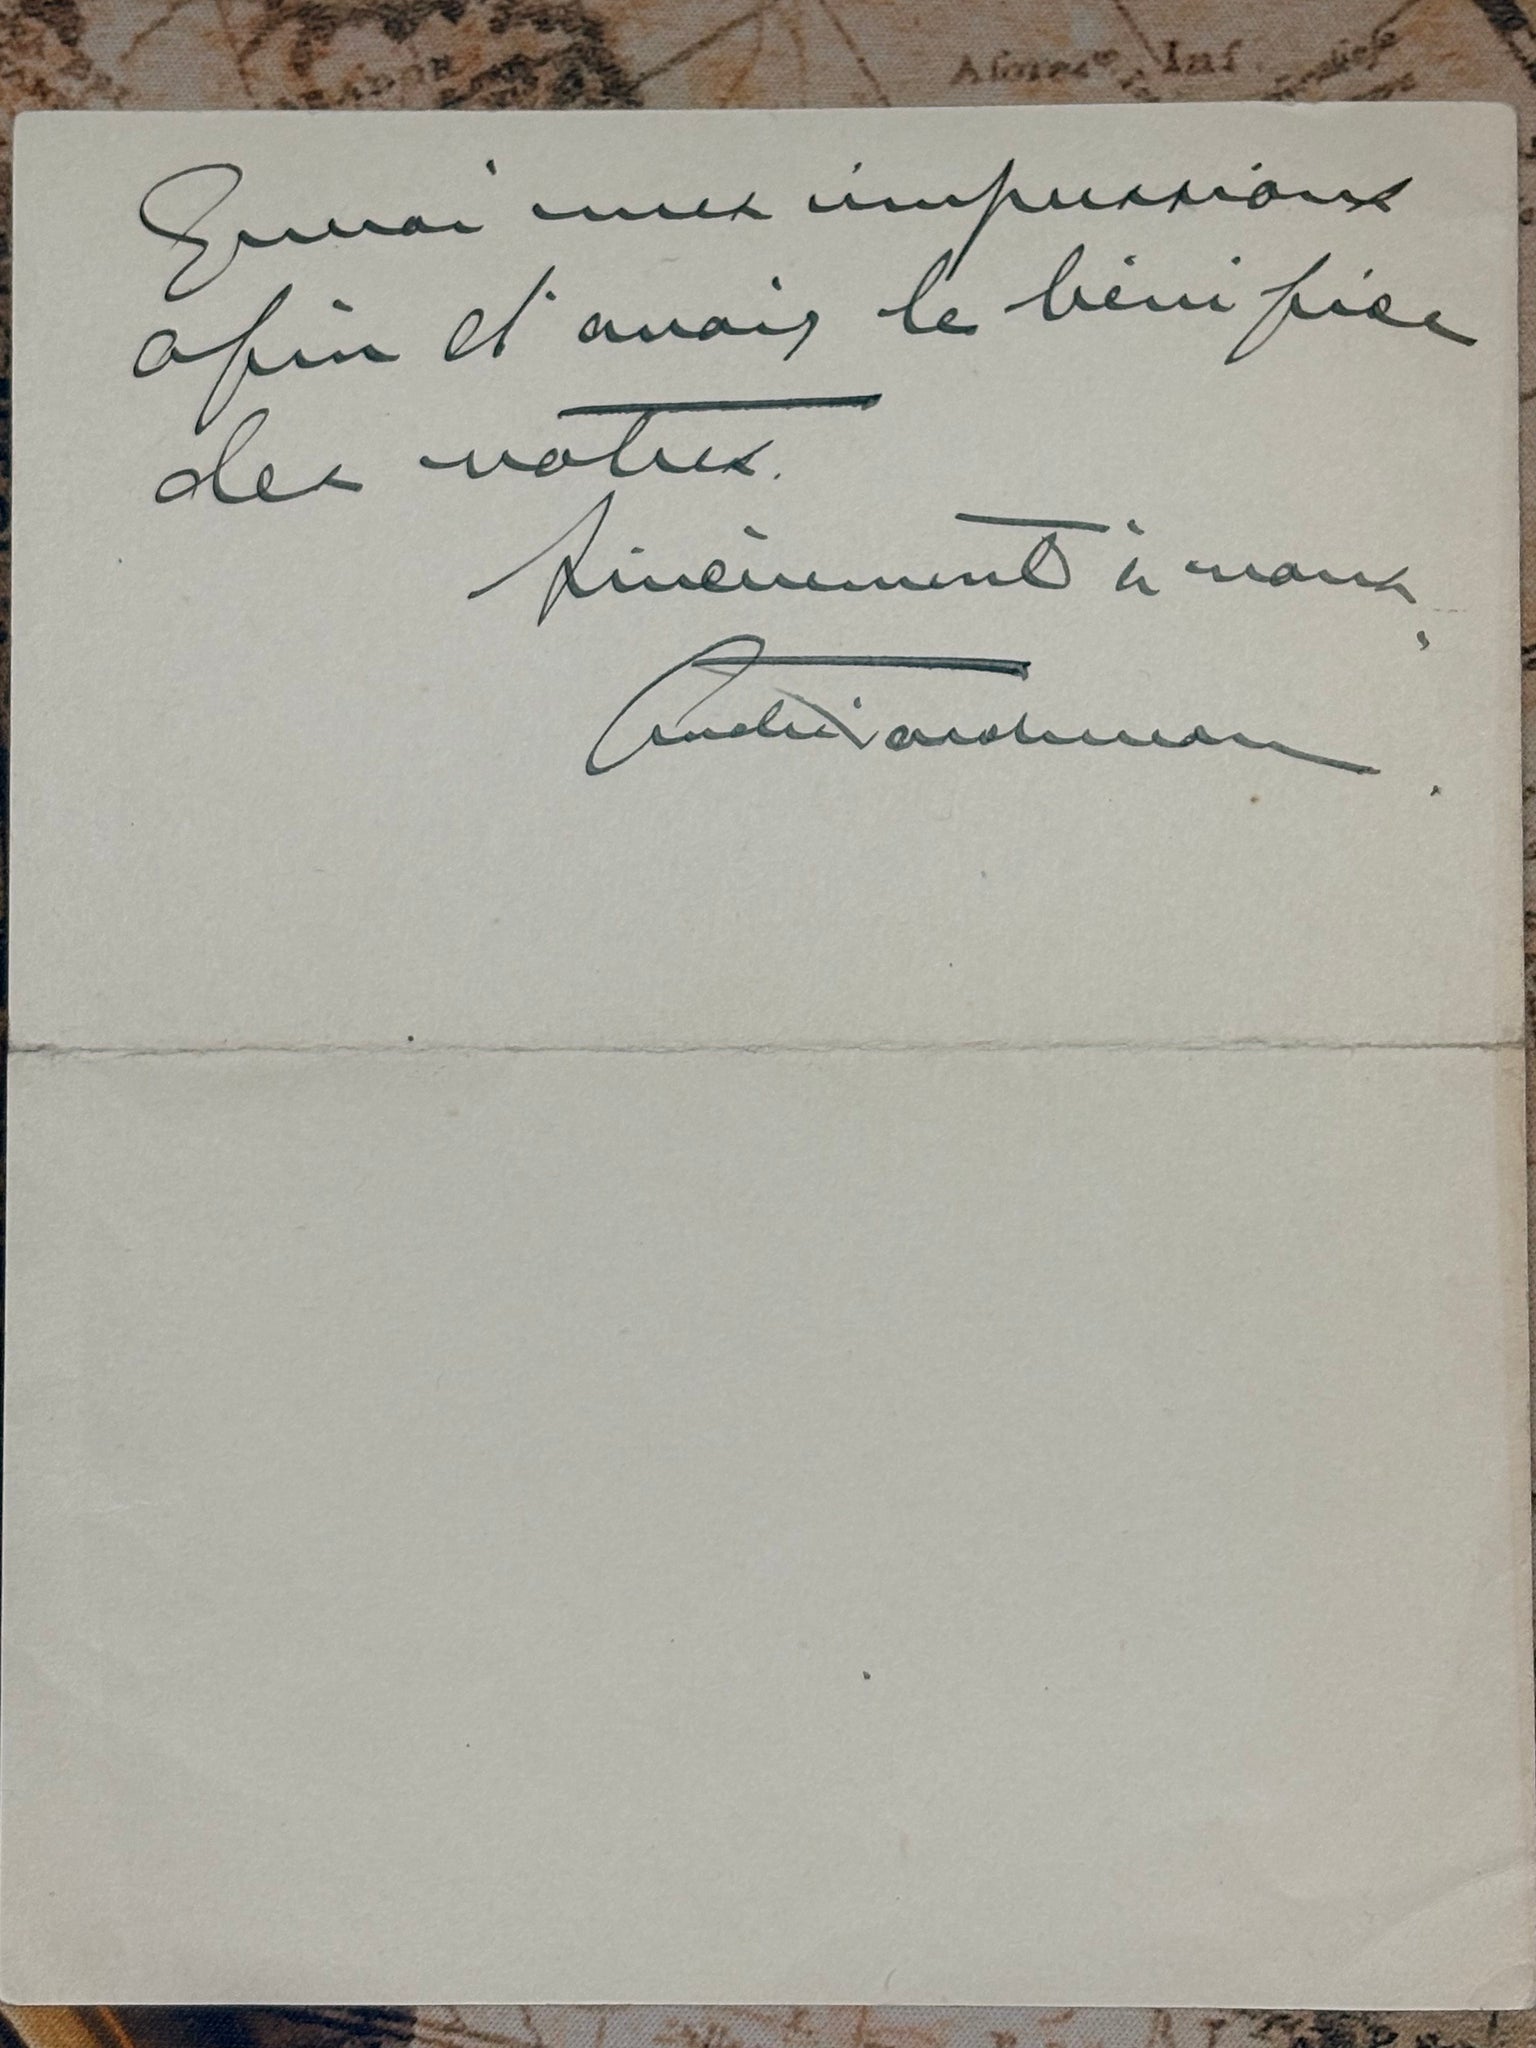 Inf.
mes impressions
afin d'avoir le bénéfice
des votres.
Sincèrement à vous,